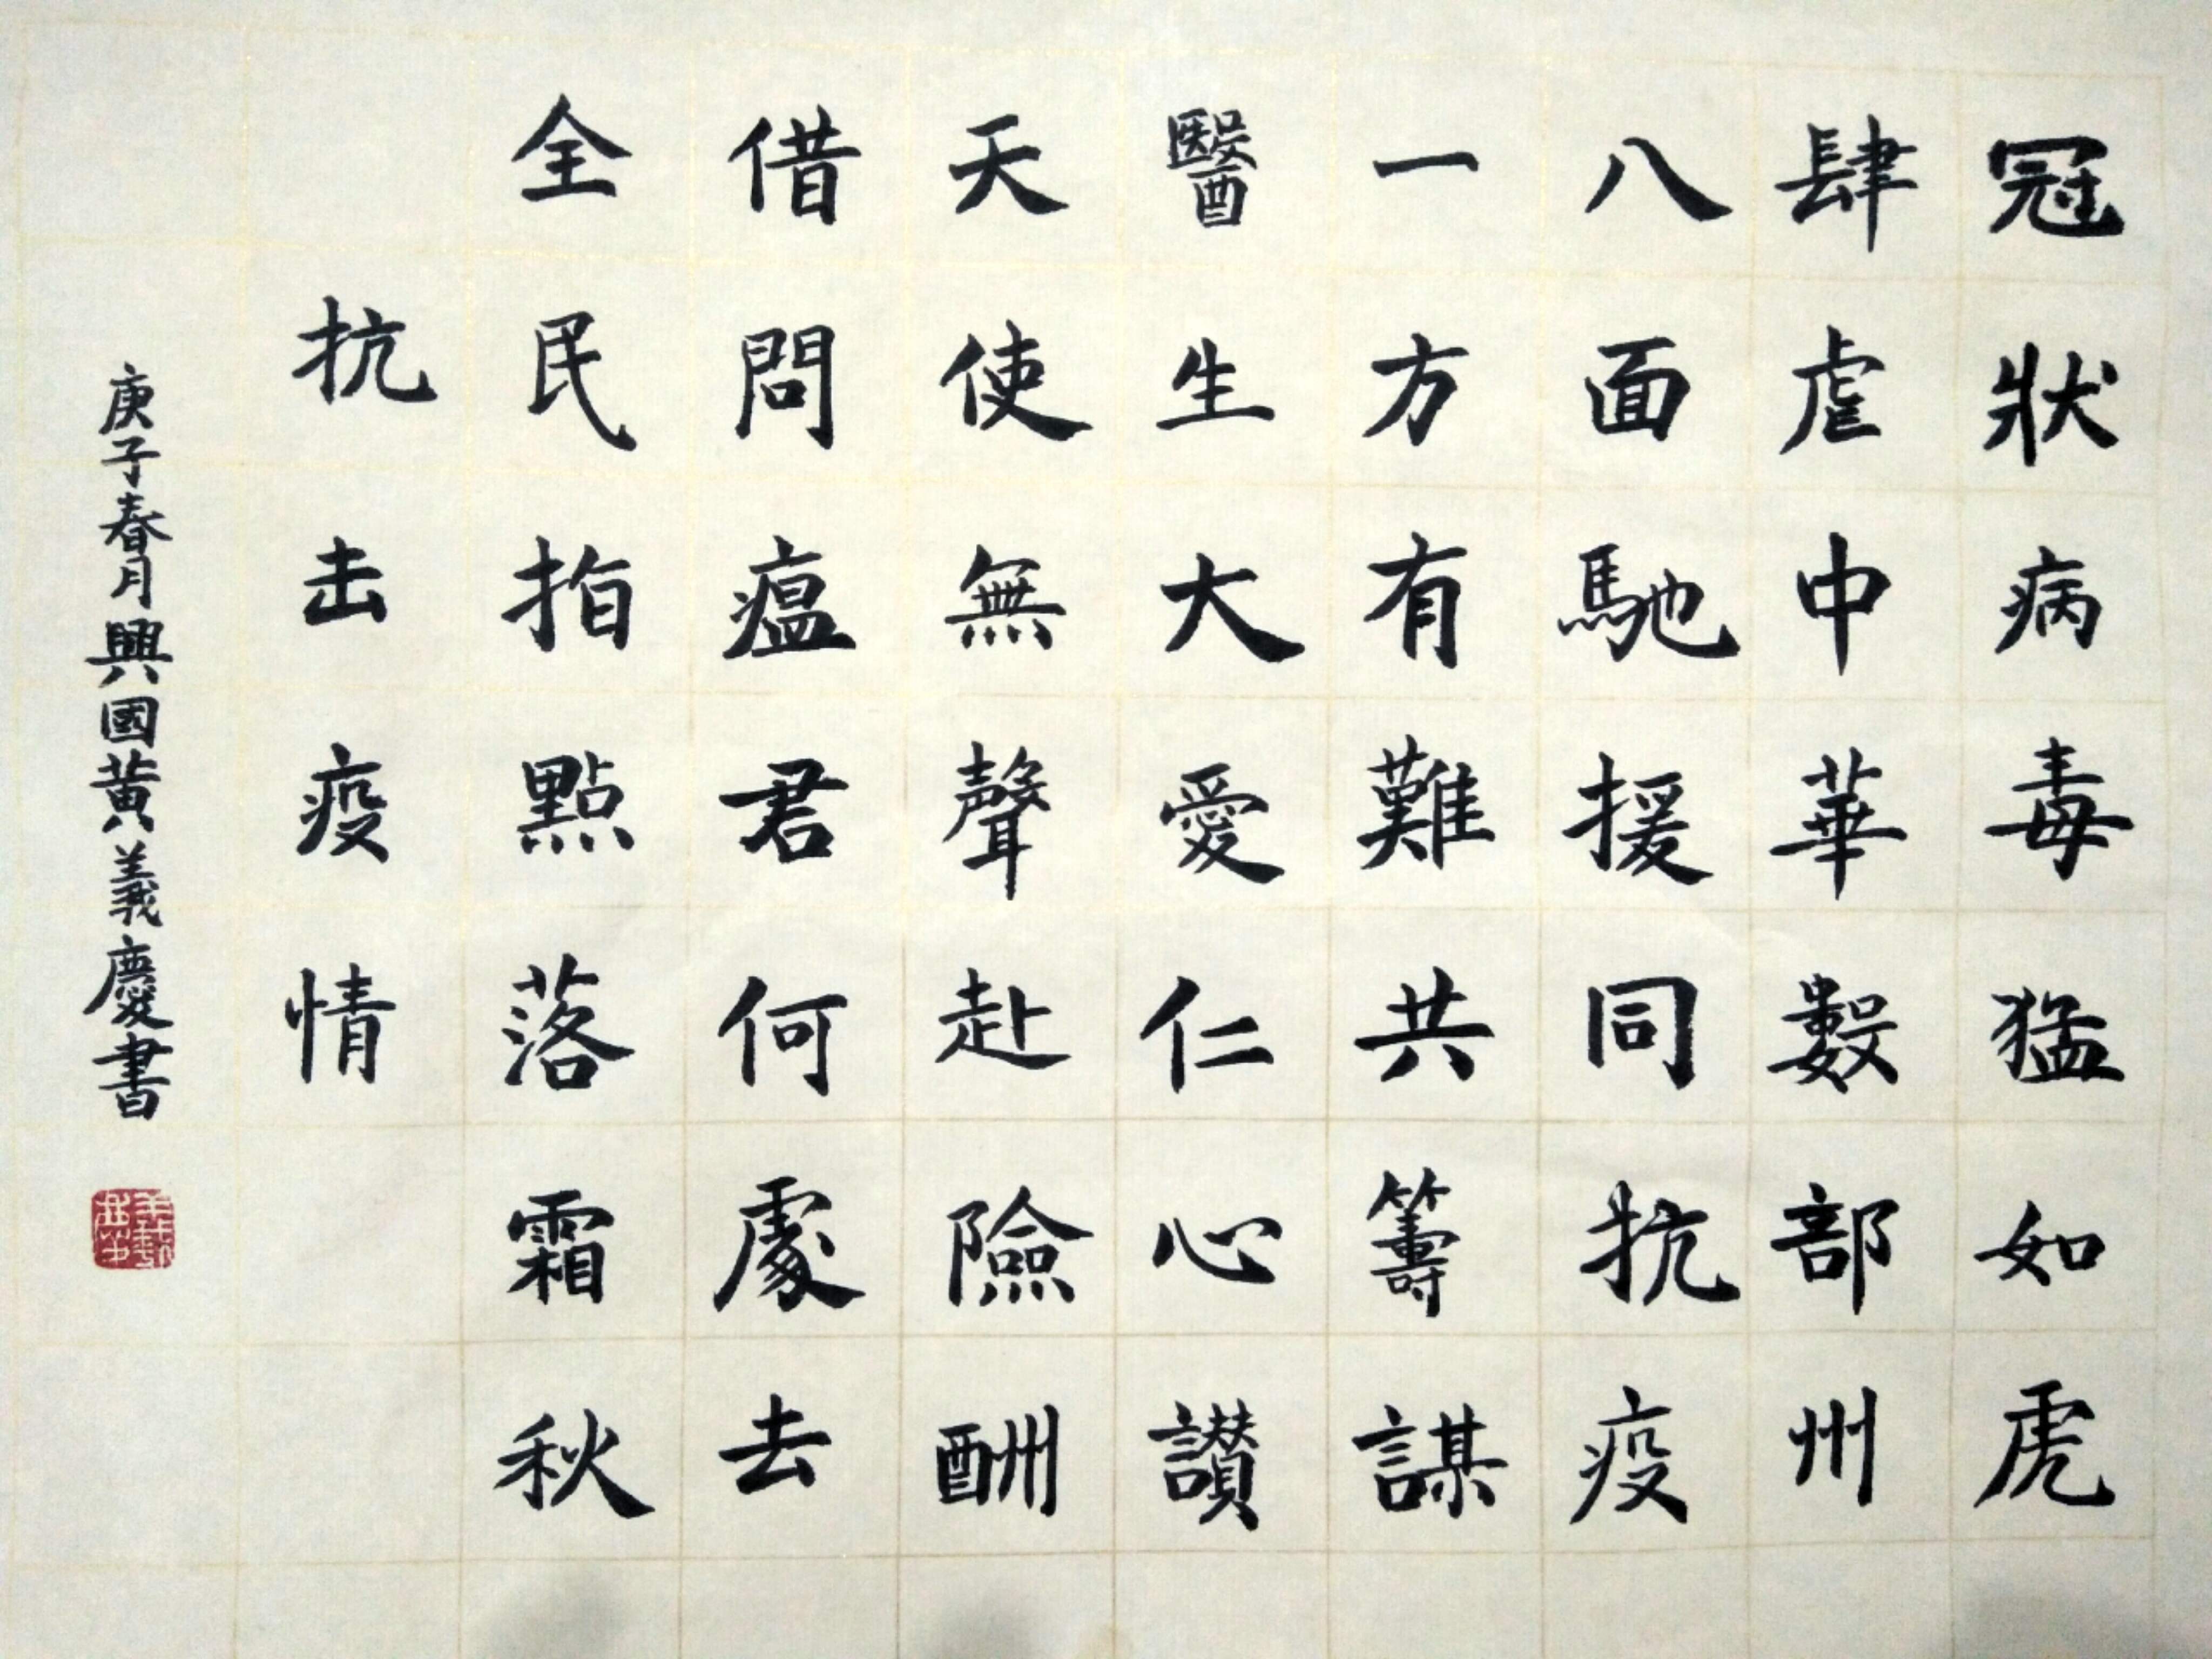 冠狀病毒猛如虎
肆虐中華數部州
八面馳援同抗疫
一方有難共籌謀
醫生大愛仁心讚
天使無聲赴險酬
借問瘟君何處去
全民指點落霜秋
抗击疫情
庚子春月興國黃義慶書